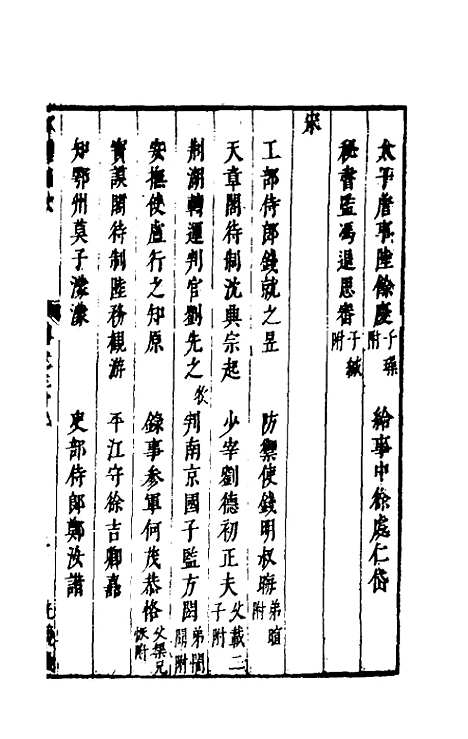 太子詹事陸餘慶子璪附 給事中徐處仁岱
秘書監馮退思審子緘附
宋
工部侍郎錢就之昱 防禦使錢明叔晦弟暄附
天章閣待制沈興宗起 少宰劉德初正夫父載二子附
荆湖轉運判官劉先之牧 判南京國子監方閎弟闇聞附
安撫使盧行之知原 錄事参軍何茂恭恪父榘兄恢附
寳謨閣待制陸務觀游 平江守徐吉卿嚞
知鄂州莫子濛濛 吏部侍郎鄭汝諧